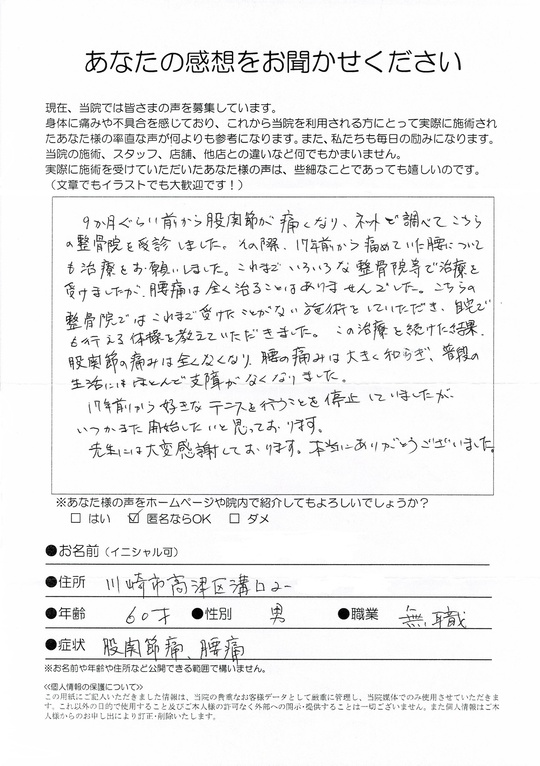 あなたの感想をお聞かせください
現在、当院では皆さまの声を募集しています。
身体に痛みや不具合を感じており、これから当院を利用される方にとって実際に施術され
たあなた様の率直な声が何よりも参考になります。また、私たちも毎日の励みになります。
当院の施術、スタッフ、店舗、他店との違いなど何でもかまいません。
実際に施術を受けていただいたあなた様の声は、些細なことであっても嬉しいのです。
（文章でもイラストでも大歓迎です！）
9か月ぐらい前から股関節が痛くなり、ネットで調べてこちら
の整骨院を受診しました。その際、17年前から痛めていた腰について
も治療をお願いしました。これまでいろいろな整骨院等で治療を
受けましたが、腰痛は全く治ることはありませんでした。こちらの
整骨院ではこれまで受けたことがない施術をしていただき、自宅で
も行える体操を教えていただきました。この治療を続けた結果、
股関節の痛みは全くなくなり、腰の痛みは大きく和らぎ、普段の
生活にはほとんど支障がなくなりました。
17年前から好きなテニスを行うことを停止していましたが、
いつかまた開始したいと思っております。
先生には大変感謝しております。本当にありがとうございました。
※あなた様の声をホームページや院内で紹介してもよろしいでしょうか？
□ はい ☑ 匿名ならOK □ ダメ
●お名前（イニシャル可）
●住所 川崎市高津区溝口2-
●年齢 60才 ●性別 男 ●職業 無職
●症状 股関節痛、腰痛
※お名前や年齢や住所など公開できる範囲で構いません。
≪個人情報の保護について≫
この用紙にご記入いただきました情報は、当院の貴重なお客様データとして厳重に管理し、当院媒体でのみ使用させていただきま
す。これ以外の目的で使用すること及びご本人様の許可なく外部への開示・提供することは一切ございません。また個人情報はご本
人様からのお申し出により訂正・削除いたします。